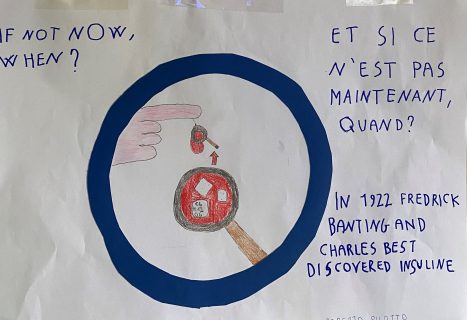 IF NOT NOW,
WHEN?
ET SI CE
N'EST PAS
MAINTENANT,
QUAND?
IN 1922 FREDRICK
BANTING AND
CHARLES BEST
DISCOVERED INSULINE